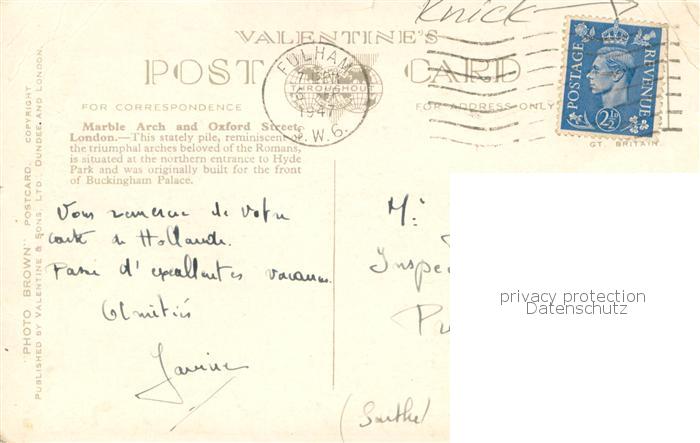 Knick
VALENTINE'S
POST CARD
FOR CORRESPONDENCE
FOR ADDRESS ONLY
FULHAM
THROUGHOUT
1947
S.W.6.
POSTAGE REVENUE
2½D
GT. BRITAIN
Marble Arch and Oxford Street,
London.—This stately pile, reminiscent of
the triumphal arches beloved of the Romans,
is situated at the northern entrance to Hyde
Park and was originally built for the front
of Buckingham Palace.
"PHOTO BROWN" POSTCARD. COPYRIGHT
PUBLISHED BY VALENTINE & SONS, LTD., DUNDEE AND LONDON.
Vous remercie de votre
carte de Hollande.
Passé d'excellentes vacances.
Amitiés
Janine
M:
Inspec
(Sarthe)
privacy protection
Datenschutz